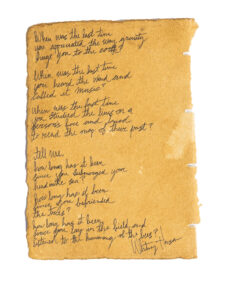 When was the last time
you appreciated the way gravity
hugs you to the earth?
When was the last time
you heard the wind and
called it music?
When was the last time
you studied the lines on a
person's face and found
to read the map of their past?
tell me,
how long has it been
since you submerged your
head
how long has it been
since you befriended
the birds?
how long has it been
since you lay in the field and
listened to the humming of the bees?